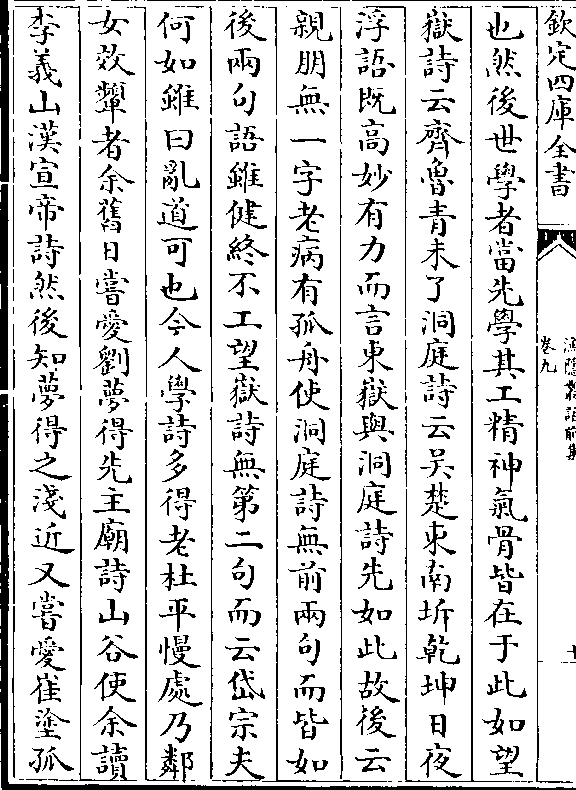 欽定四庫全書
漁隱叢話前集
卷九
十
也然後世學者當先學其工精神氣骨皆在于此如望
嶽詩云齊魯青未了洞庭詩云吴楚東南坼乾坤日夜
浮語既高妙有力而言東嶽與洞庭詩先如此故後云
親朋無一字老病有孤舟使洞庭詩無前兩句而皆如
後兩句語雖健終不工望嶽詩無第二句而云岱宗夫
何如雖曰亂道可也今人學詩多得老杜平慢處乃鄰
女效顰者余舊日嘗愛劉夢得先主廟詩山谷使余讀
李義山漢宣帝詩然後知夢得之淺近又嘗愛崔塗孤